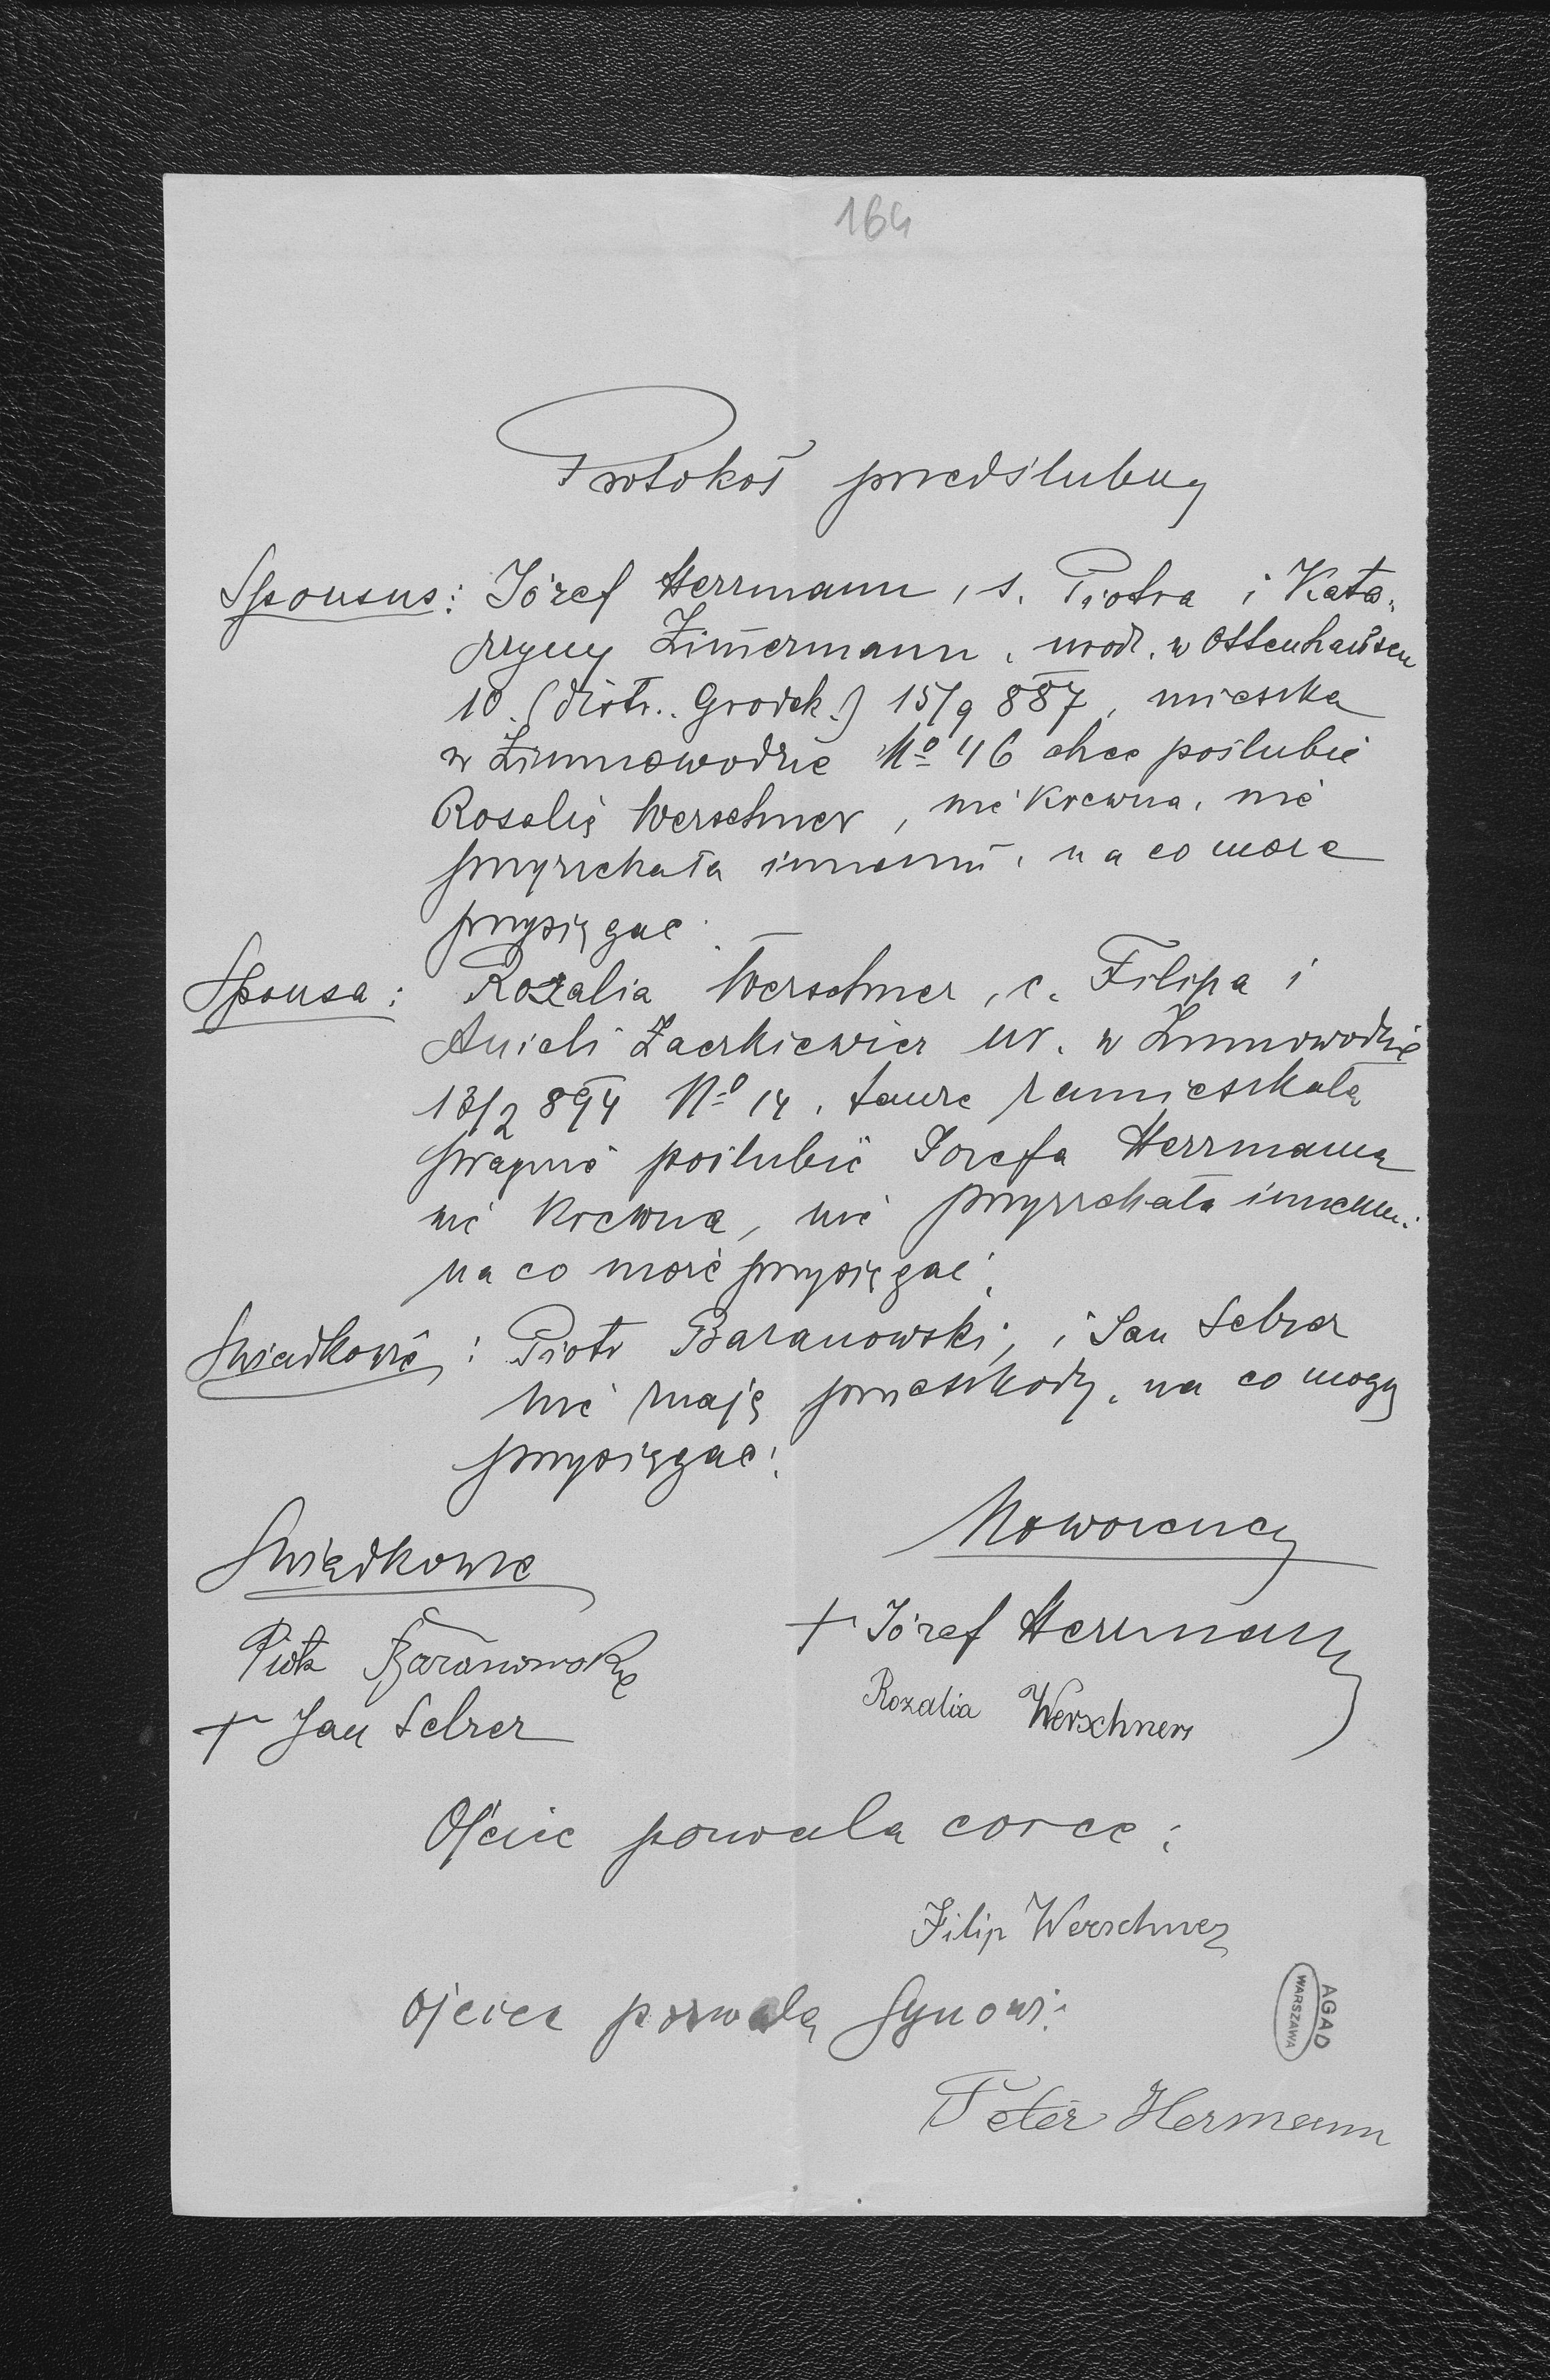 164
Protokół przedślubny
Sponsus: Józef Herrmann, s. Piotra i Kata-
rzyny Zimermann, urodz. w Ottenhausen
10. (distr. Grodek.) 15/9 887, mieszka
w Zimnowodzie No 46 chce poślubić
Rosalię Werschner, nie krewna, nie
przyrzekała innemu, na co może
przysięgać.
Sponsa: Rozalia Werschner, c. Filipa i
Anieli Zaerkiewicz ur. w Zimnowodzie
13/2 894 No 14, tamże zamieszkała
pragnie poślubić Józefa Herrmanna
nie krewna, nie przyrzekała innemu.
na co może przysięgać.
Świadkowie: Piotr Baranowski, i Jan Selzer
nie znają przeszkody, na co mogą
przysięgać.
Nowożeńcy
Świadkowie
+ Józef Herrmann
Piotr Baranowski
Rozalia Werschner
+ Jan Selzer
Ojciec pozwala corce:
Filip Werschner
Ojciec pozwala synowi:
AGAD
WARSZAWA
Peter Hermann